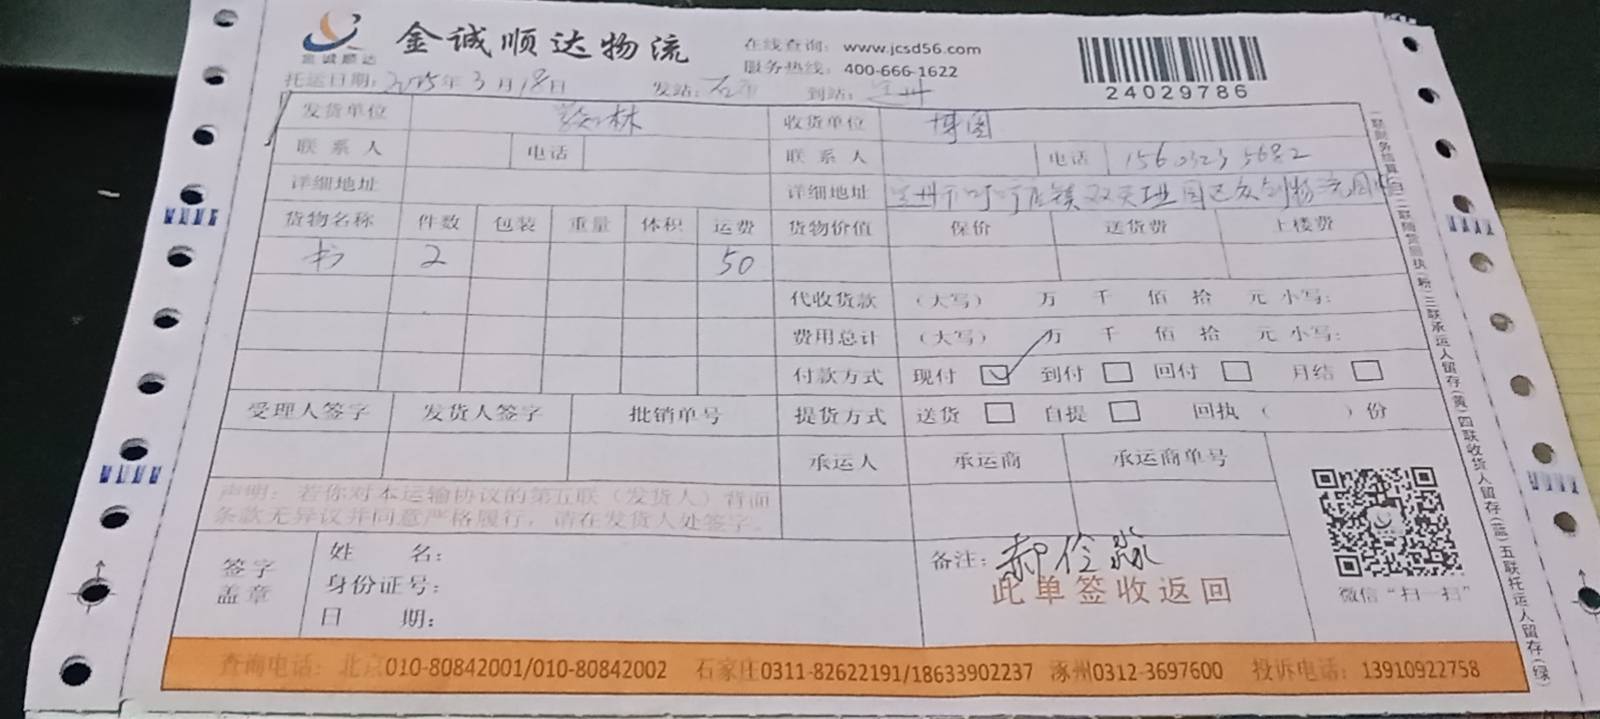 金诚顺达
金诚顺达物流
在线查询: www.jcsd56.com
服务热线: 400-666-1622
24029786
托运日期: 2025年3月18日 发站: 石 到站:
发货单位 林 收货单位 博图
联系人 电话 联系人 电话 156 0323 5682
详细地址 详细地址
货物名称 件数 包装 重量 体积 运费 货物价值 保价 送货费 上楼费
书 2 50
代收货款 (大写) 万 千 佰 拾 元 小写:
费用总计 (大写) 万 千 佰 拾 元 小写:
付款方式 现付 到付 回付 月结
受理人签字 发货人签字 批销单号 提货方式 送货 自提 回执( )份
承运人 承运商 承运商单号
声明: 若你对本运输协议的第五联(发货人)背面
条款无异议并同意严格履行, 请在发货人处签字。
签字
盖章
姓 名:
身份证号:
日 期:
备注: 郝伶淼
此单签收返回
微信“扫一扫”
一联财务结算(白)二联随货回执(粉)三联承运人留存(黄)四联收货人留存(蓝)五联托运人留存(绿)
查询电话: 北京010-80842001/010-80842002 石家庄0311-82622191/18633902237 涿州0312-3697600 投诉电话: 13910922758